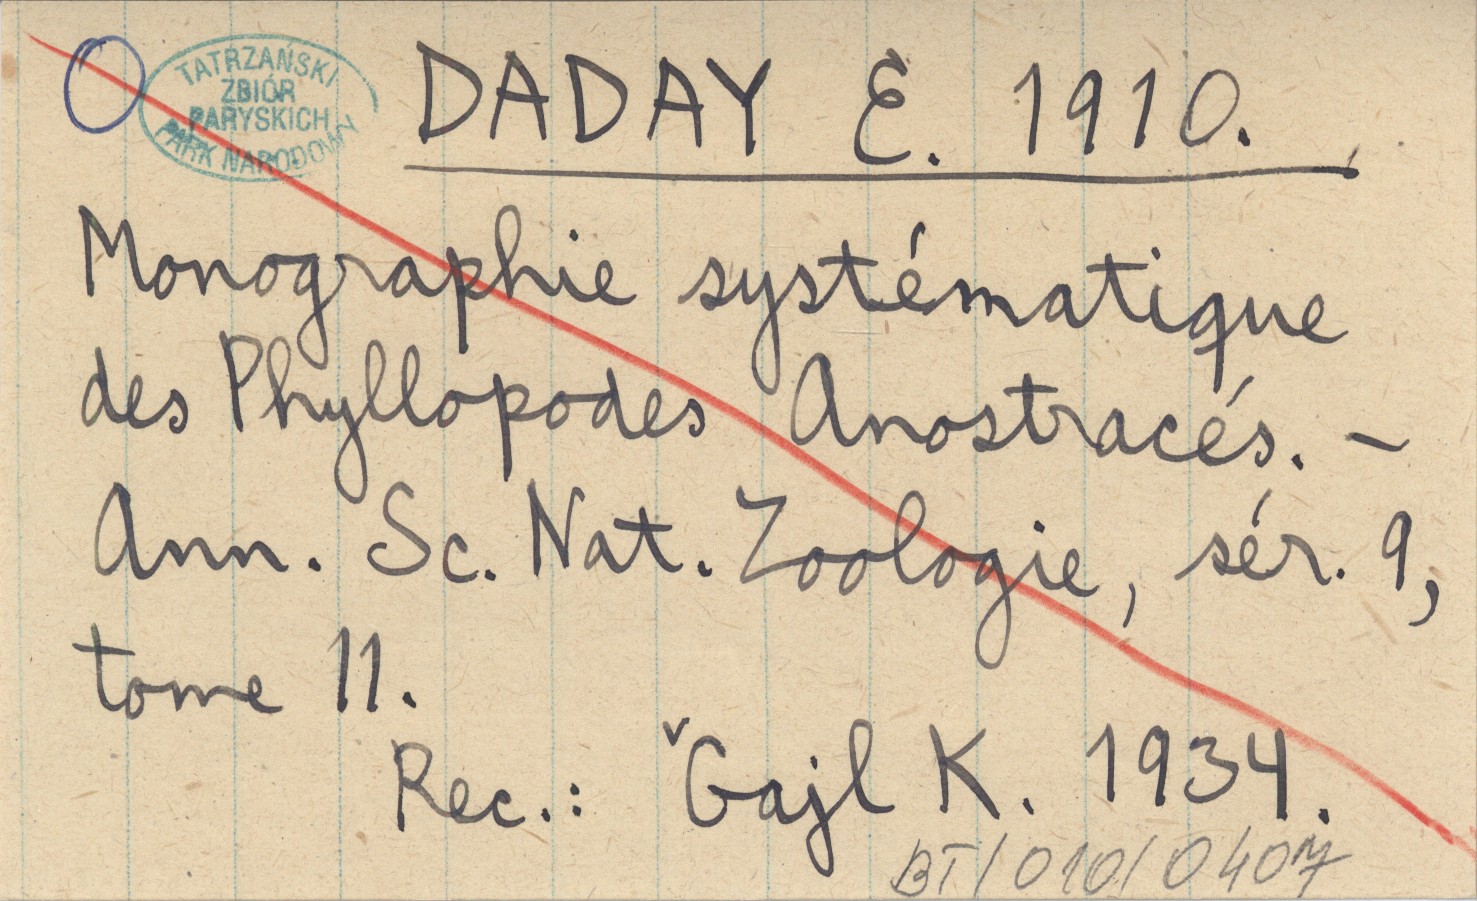 TATRZAŃSKI
ZBIÓR
PARYSKICH
PARK NARODOWY
DADAY E. 1910.
Monographie systématique
des Phyllopodes Anostracés. –
Ann. Sc. Nat. Zoologie, sér. 9,
tome 11.
Rec.: Gajl K. 1934.
BT/010/0407